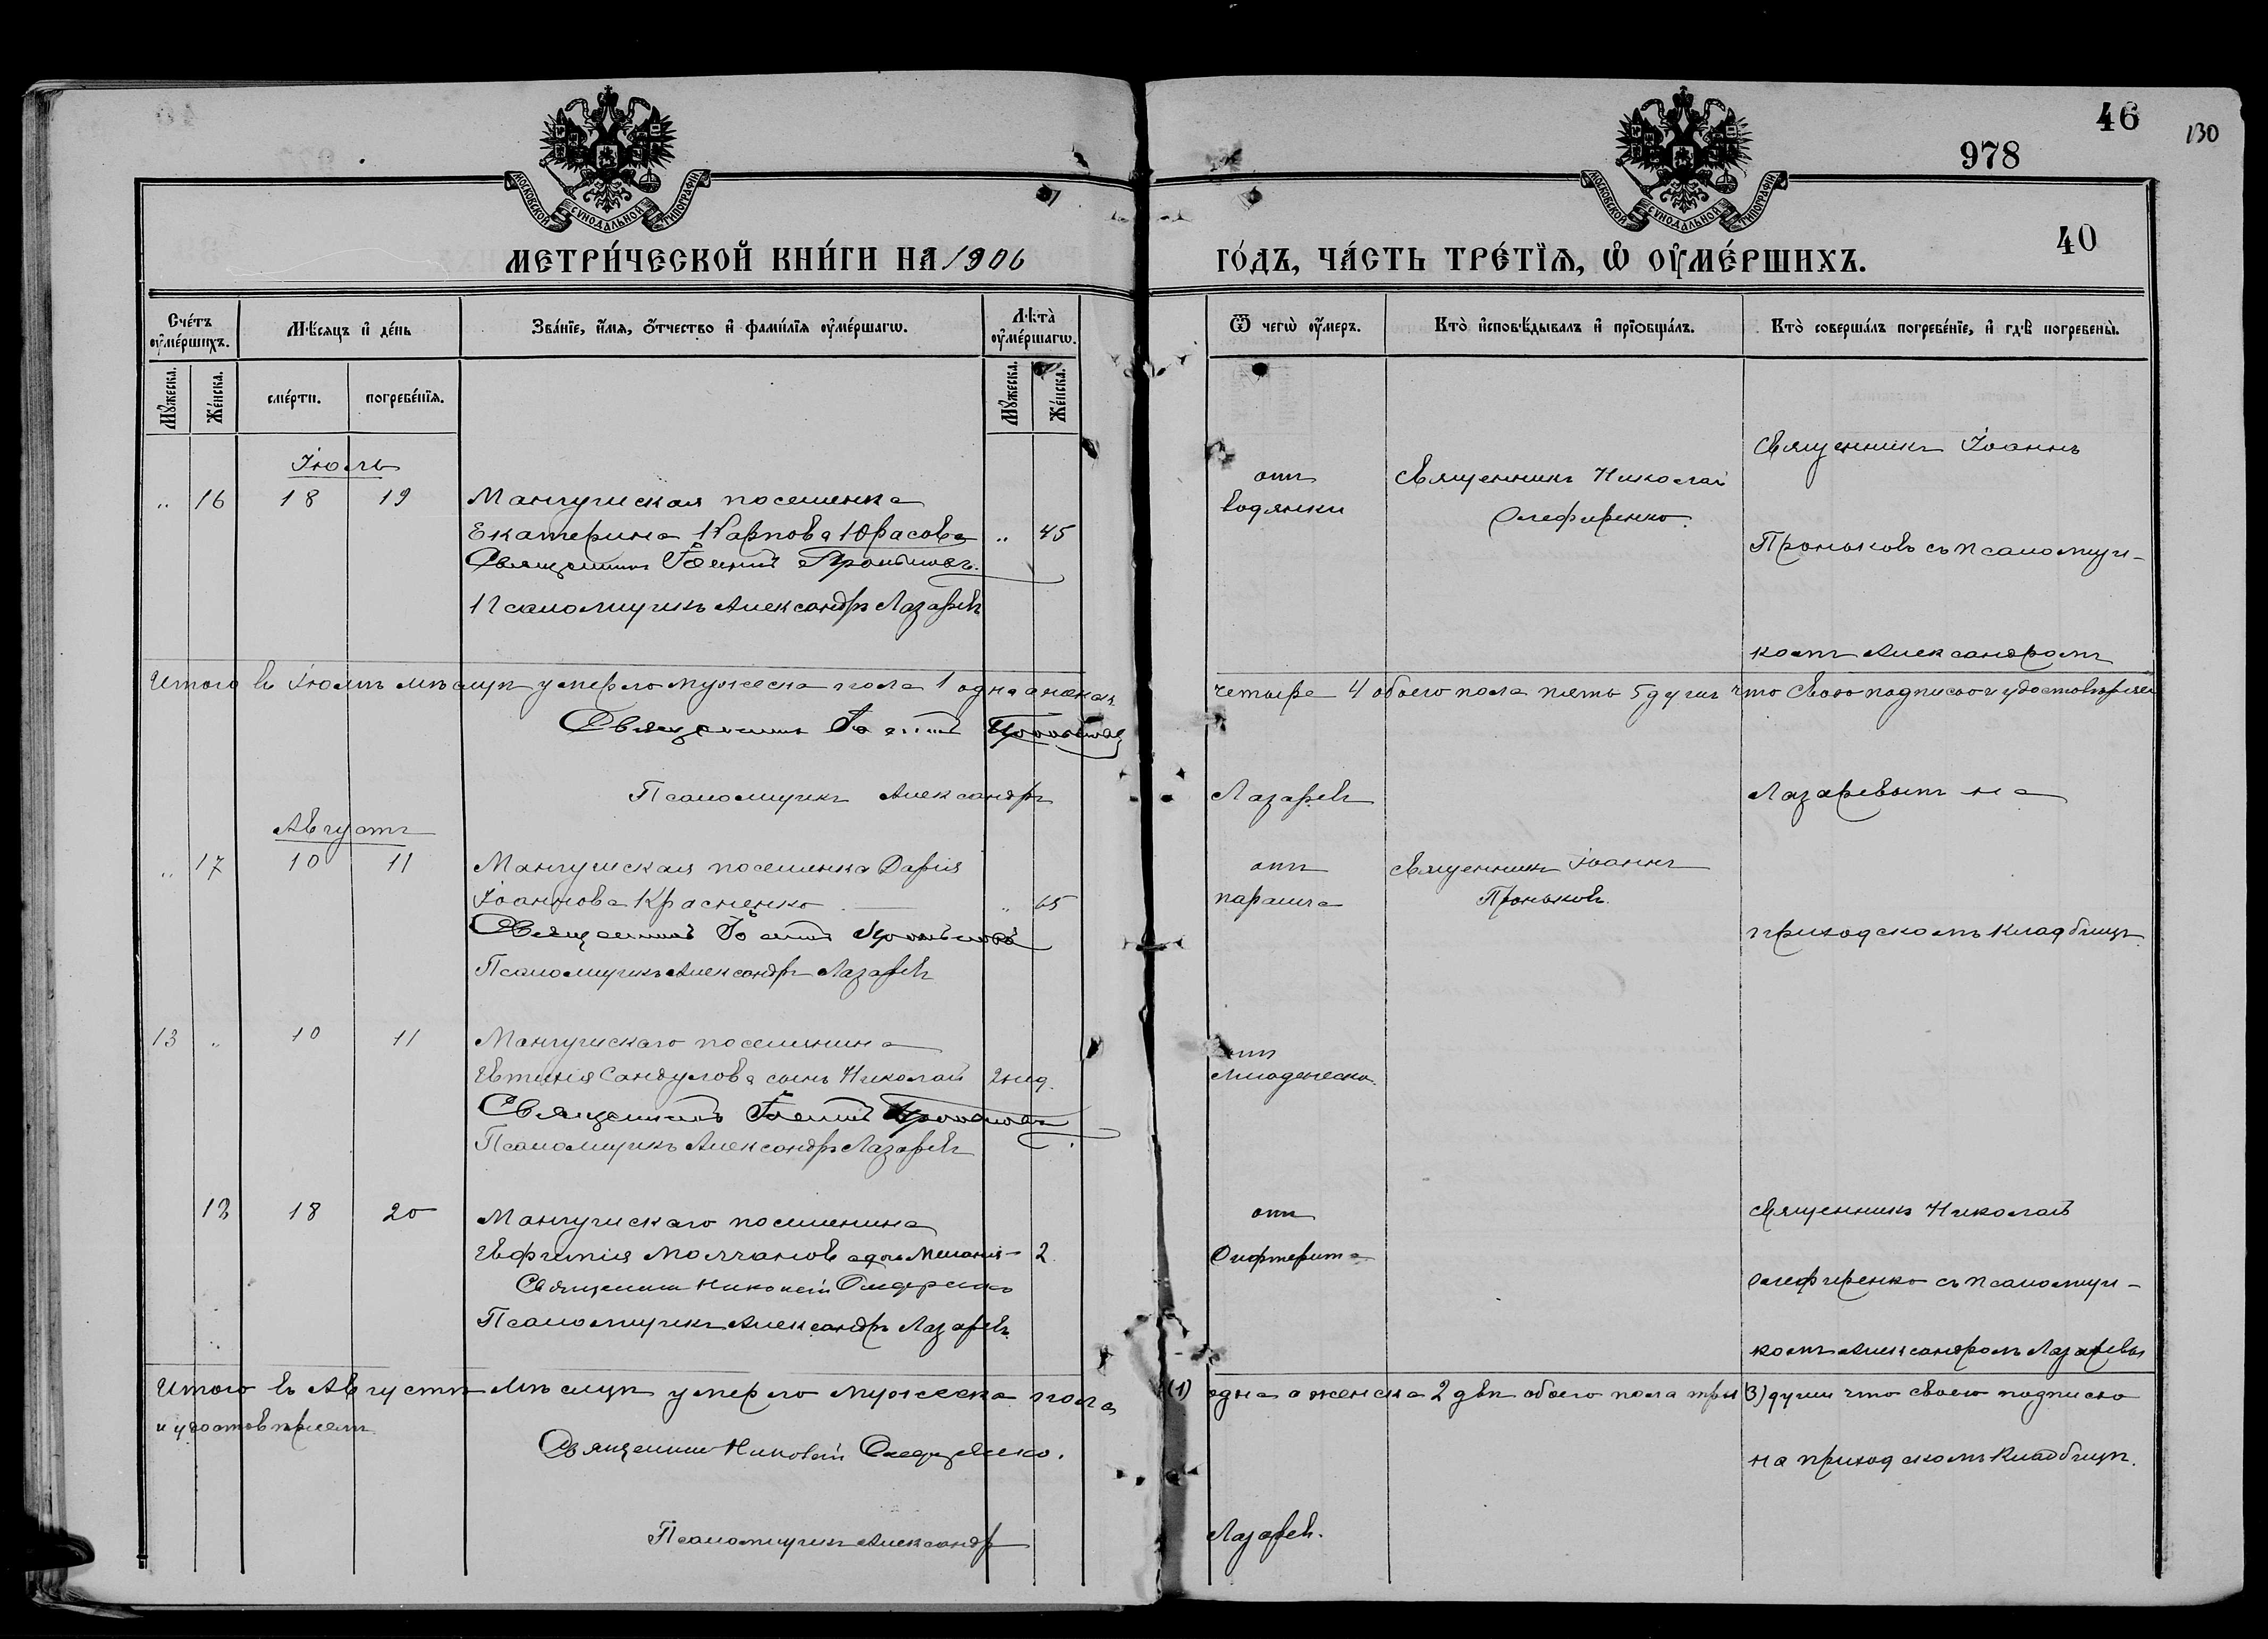 46
130
978
40
МОСКОВСКОЙ СУНОДАЛЬНОЙ ТИПОГРАФІИ
МОСКОВСКОЙ СУНОДАЛЬНОЙ ТИПОГРАФІИ
МЕТРИ́ЧЕСКОЙ КНИ́ГИ НА 1906
ГО́ДЪ, ЧА́СТЬ ТРЕ́ТЇѦ, Ѡ҆ ОУ҆МЕ́РШИХЪ.
Сче́тъ оу҆ме́ршихъ.
Мѣ́сяцъ и҆ де́нь
Зва́нїе, и҆́мя, ѻ҆́тчество и҆ фами́лїя оу҆ме́ршагѡ.
Лѣта̀ оу҆ме́ршагѡ.
Ѿ чегѡ̀ оу҆́меръ.
Кто̀ и҆сповѣ́дывалъ и҆ прїѡбща́лъ.
Кто̀ соверша́лъ погребе́нїе, и҆ гдѣ̀ погребены̀.
Мꙋ́жеска.
Же́нска.
сме́рти.
погребе́нїя.
Мꙋ́жеска.
Же́нска.
Іюль
" 16 18 19 Мангушская поселенка
Екатерина Карпова Юрасова " 45
Священникъ Іоаннъ Проньковъ.
Псаломщикъ Александръ Лазаревъ
отъ
водянки
Священникъ Николай
Олефиренко.
Священникъ Іоаннъ
Проньковъ съ псаломщи-
комъ Александромъ
Итого въ Іюлѣ мѣсяцѣ умерло мужеска пола 1 одна а женска
четыре 4 обоего пола пять 5 душъ что свою подписью и удостовѣряемъ
Священникъ Іоаннъ Проньковъ
Псаломщикъ Александръ
Лазаревъ
Лазаревымъ на
Августъ
" 17 10 11 Мангушская поселенка Дарія
Іоаннова Красненко " 65
Священникъ Іоаннъ Проньковъ
Псаломщикъ Александръ Лазаревъ
отъ
паралича
Священникъ Іоаннъ
Проньковъ.
приходскомъ кладбищѣ.
13 " 10 11 Мангушскаго поселянина
Евтихія Сандулова сынъ Николай 2 нед.
Священникъ Іоаннъ Проньковъ
Псаломщикъ Александръ Лазаревъ
отъ
младенческ.
18 18 20 Мангушскаго поселянина
Евфимія Молчанов дочь Меланія 2
Священникъ Николай Олефиренко
Псаломщикъ Александръ Лазаревъ
отъ
Дифтерита
Священникъ Николай
Олефиренко съ псаломщи-
комъ Александромъ Лазаревы
Итого въ Августѣ мѣсяцѣ умерло мужеска пола
(1) одна а женска 2 двѣ обоего пола три (3) души что своею подписью
и удостовѣряемъ
Священникъ Николай Олефиренко.
на приходскомъ кладбищѣ.
Псаломщикъ Александръ
Лазаревъ.